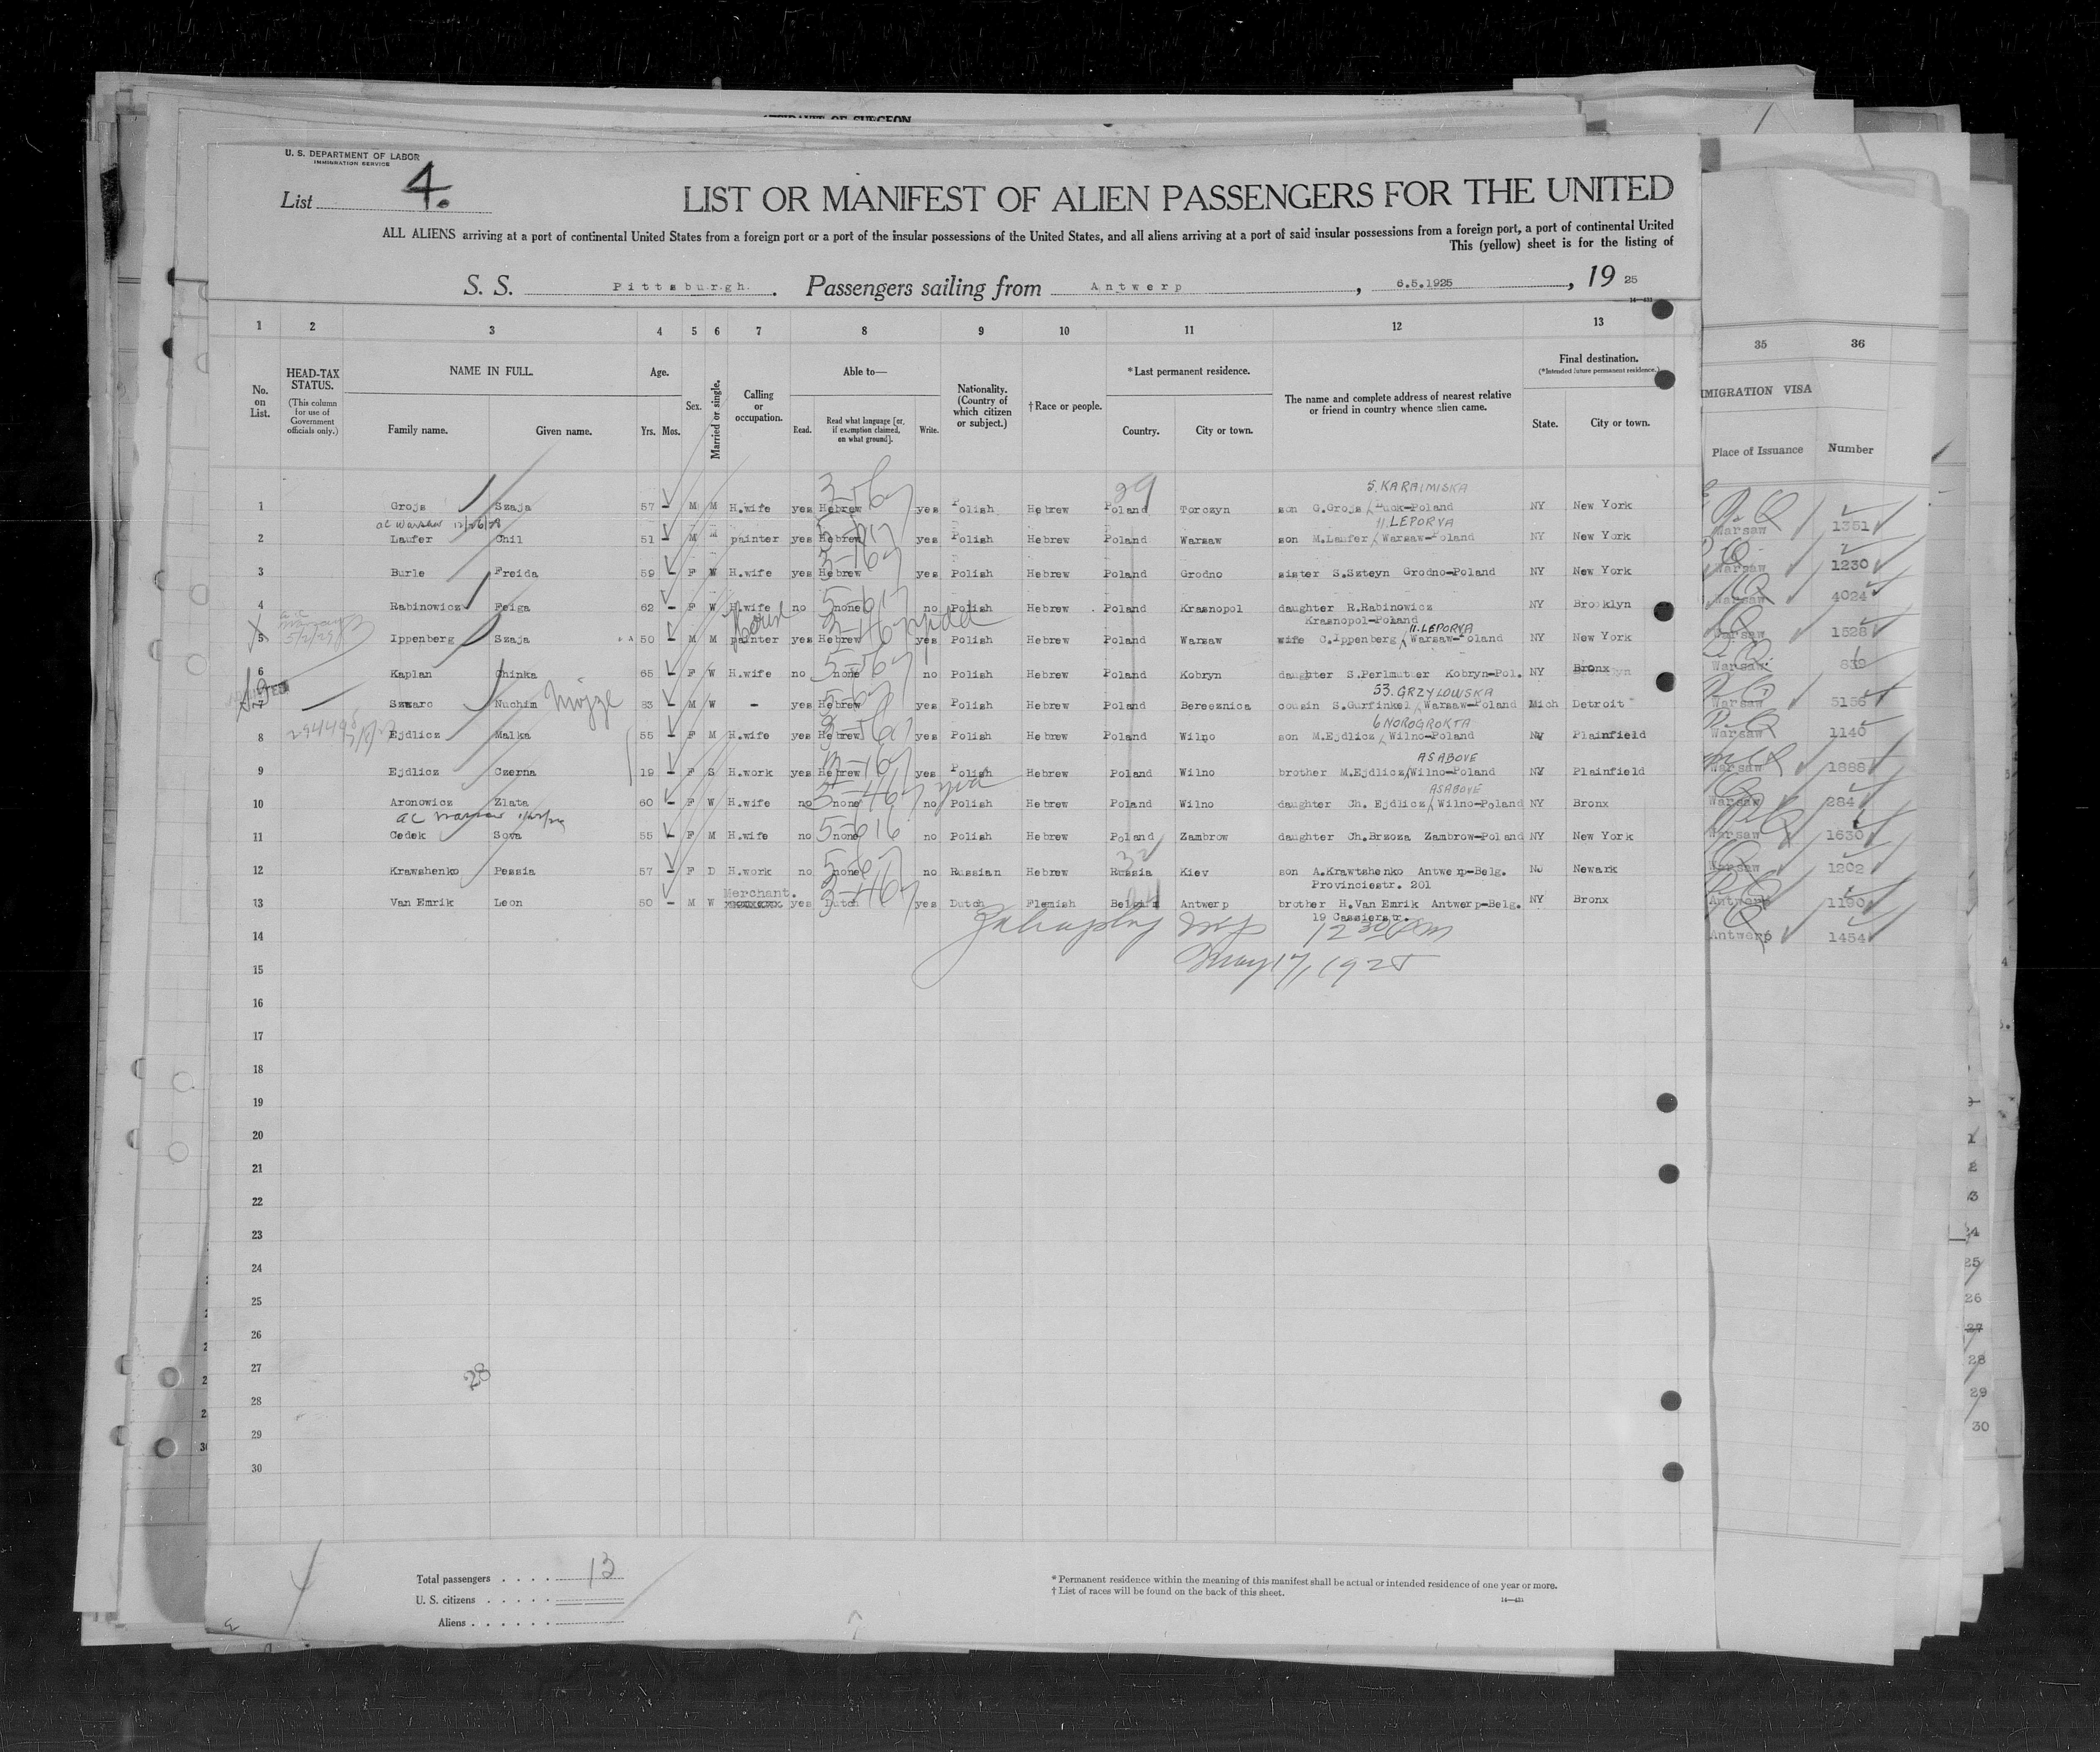 AFFIDAVIT OF SURGEON
U. S. DEPARTMENT OF LABOR
IMMIGRATION SERVICE
List 4.
LIST OR MANIFEST OF ALIEN PASSENGERS FOR THE UNITED
ALL ALIENS arriving at a port of continental United States from a foreign port or a port of the insular possessions of the United States, and all aliens arriving at a port of said insular possessions from a foreign port, a port of continental United
This (yellow) sheet is for the listing of
S. S. Pittsburgh. Passengers sailing from Antwerp, 6.5.1925, 19 25
14—431
1 2 3 4 5 6 7 8 9 10 11 12 13 35 36
No. on List.
HEAD-TAX STATUS. (This column for use of Government officials only.)
NAME IN FULL. Family name. Given name.
Age. Yrs. Mos.
Sex.
Married or single.
Calling or occupation.
Able to— Read. Read what language [or, if exemption claimed, on what ground]. Write.
Nationality. (Country of which citizen or subject.)
†Race or people.
*Last permanent residence. Country. City or town.
The name and complete address of nearest relative or friend in country whence alien came.
Final destination. (*Intended future permanent residence.) State. City or town.
IMMIGRATION VISA Place of Issuance Number
29 5. KARAIMISKA
1 Grojs Szaja 57 - M M H.wife yes Hebrew yes Polish Hebrew Poland Torczyn son G.Grojs Puck-Poland NY New York Warsaw 1351
ac Warsaw 12/26/ 11.LEPORYA
2 Laufer Chil 51 - M M painter yes Hebrew yes Polish Hebrew Poland Warsaw son M.Laufer Warsaw-Poland NY New York Warsaw 1230
3 Burle Freida 59 - F W H.wife yes Hebrew yes Polish Hebrew Poland Grodno sister S.Szteyn Grodno-Poland NY New York Warsaw 4024
4 Rabinowicz Feiga 62 - F W H.wife no none no Polish Hebrew Poland Krasnopol daughter R.Rabinowicz NY Brooklyn Warsaw 1528
Krasnopol-Poland
11.LEPORYA
5 Ippenberg Szaja 50 - M M painter yes Hebrew yes Polish Hebrew Poland Warsaw wife C.Ippenberg Warsaw-Poland NY New York Warsaw 839
6 Kaplan Chinka 65 - F W H.wife no none no Polish Hebrew Poland Kobryn daughter S.Perlmutter Kobryn-Pol. NY Bronx Warsaw 5156
53. GRZYLOWSKA
7 Szwarc Nuchim 83 - M W - yes Hebrew yes Polish Hebrew Poland Bereeznica cousin S.Gurfinkel Warsaw-Poland Mich Detroit Warsaw 1140
6 NOROGROKTA
8 Ejdlicz Malka 55 - F M H.wife yes Hebrew yes Polish Hebrew Poland Wilno son M.Ejdlicz Wilno-Poland NY Plainfield Warsaw 1888
AS ABOVE
9 Ejdlicz Czerna 19 - F S H.work yes Hebrew yes Polish Hebrew Poland Wilno brother M.Ejdlicz Wilno-Poland NY Plainfield Warsaw 284
AS ABOVE
10 Aronowicz Zlata 60 - F W H.wife no none no Polish Hebrew Poland Wilno daughter Ch. Ejdlicz Wilno-Poland NY Bronx Warsaw 1630
ac Warsaw
11 Cedek Sova 55 - F M H.wife no none no Polish Hebrew Poland Zambrow daughter Ch.Brzoza Zambrow-Poland NY New York Warsaw 1202
12 Krawshenko Pessia 57 - F D H.work no none no Russian Hebrew Russia Kiev son A.Krawtshenko Antwerp-Belg. NJ Newark Antwerp 1190
Merchant. Provinciestr. 201
13 Van Emrik Leon 50 - M W yes Dutch yes Dutch Flemish Belgium Antwerp brother H.Van Emrik Antwerp-Belg. NY Bronx Antwerp 1454
19 Cassierstr.
14 12 30
May 17, 1925
15
16
17
18
19
20
21
22
23
24
25
26
27
28
28
29
30
Total passengers . . . . 13
U. S. citizens . . . . .
Aliens . . . . . .
* Permanent residence within the meaning of this manifest shall be actual or intended residence of one year or more.
† List of races will be found on the back of this sheet.
14—431